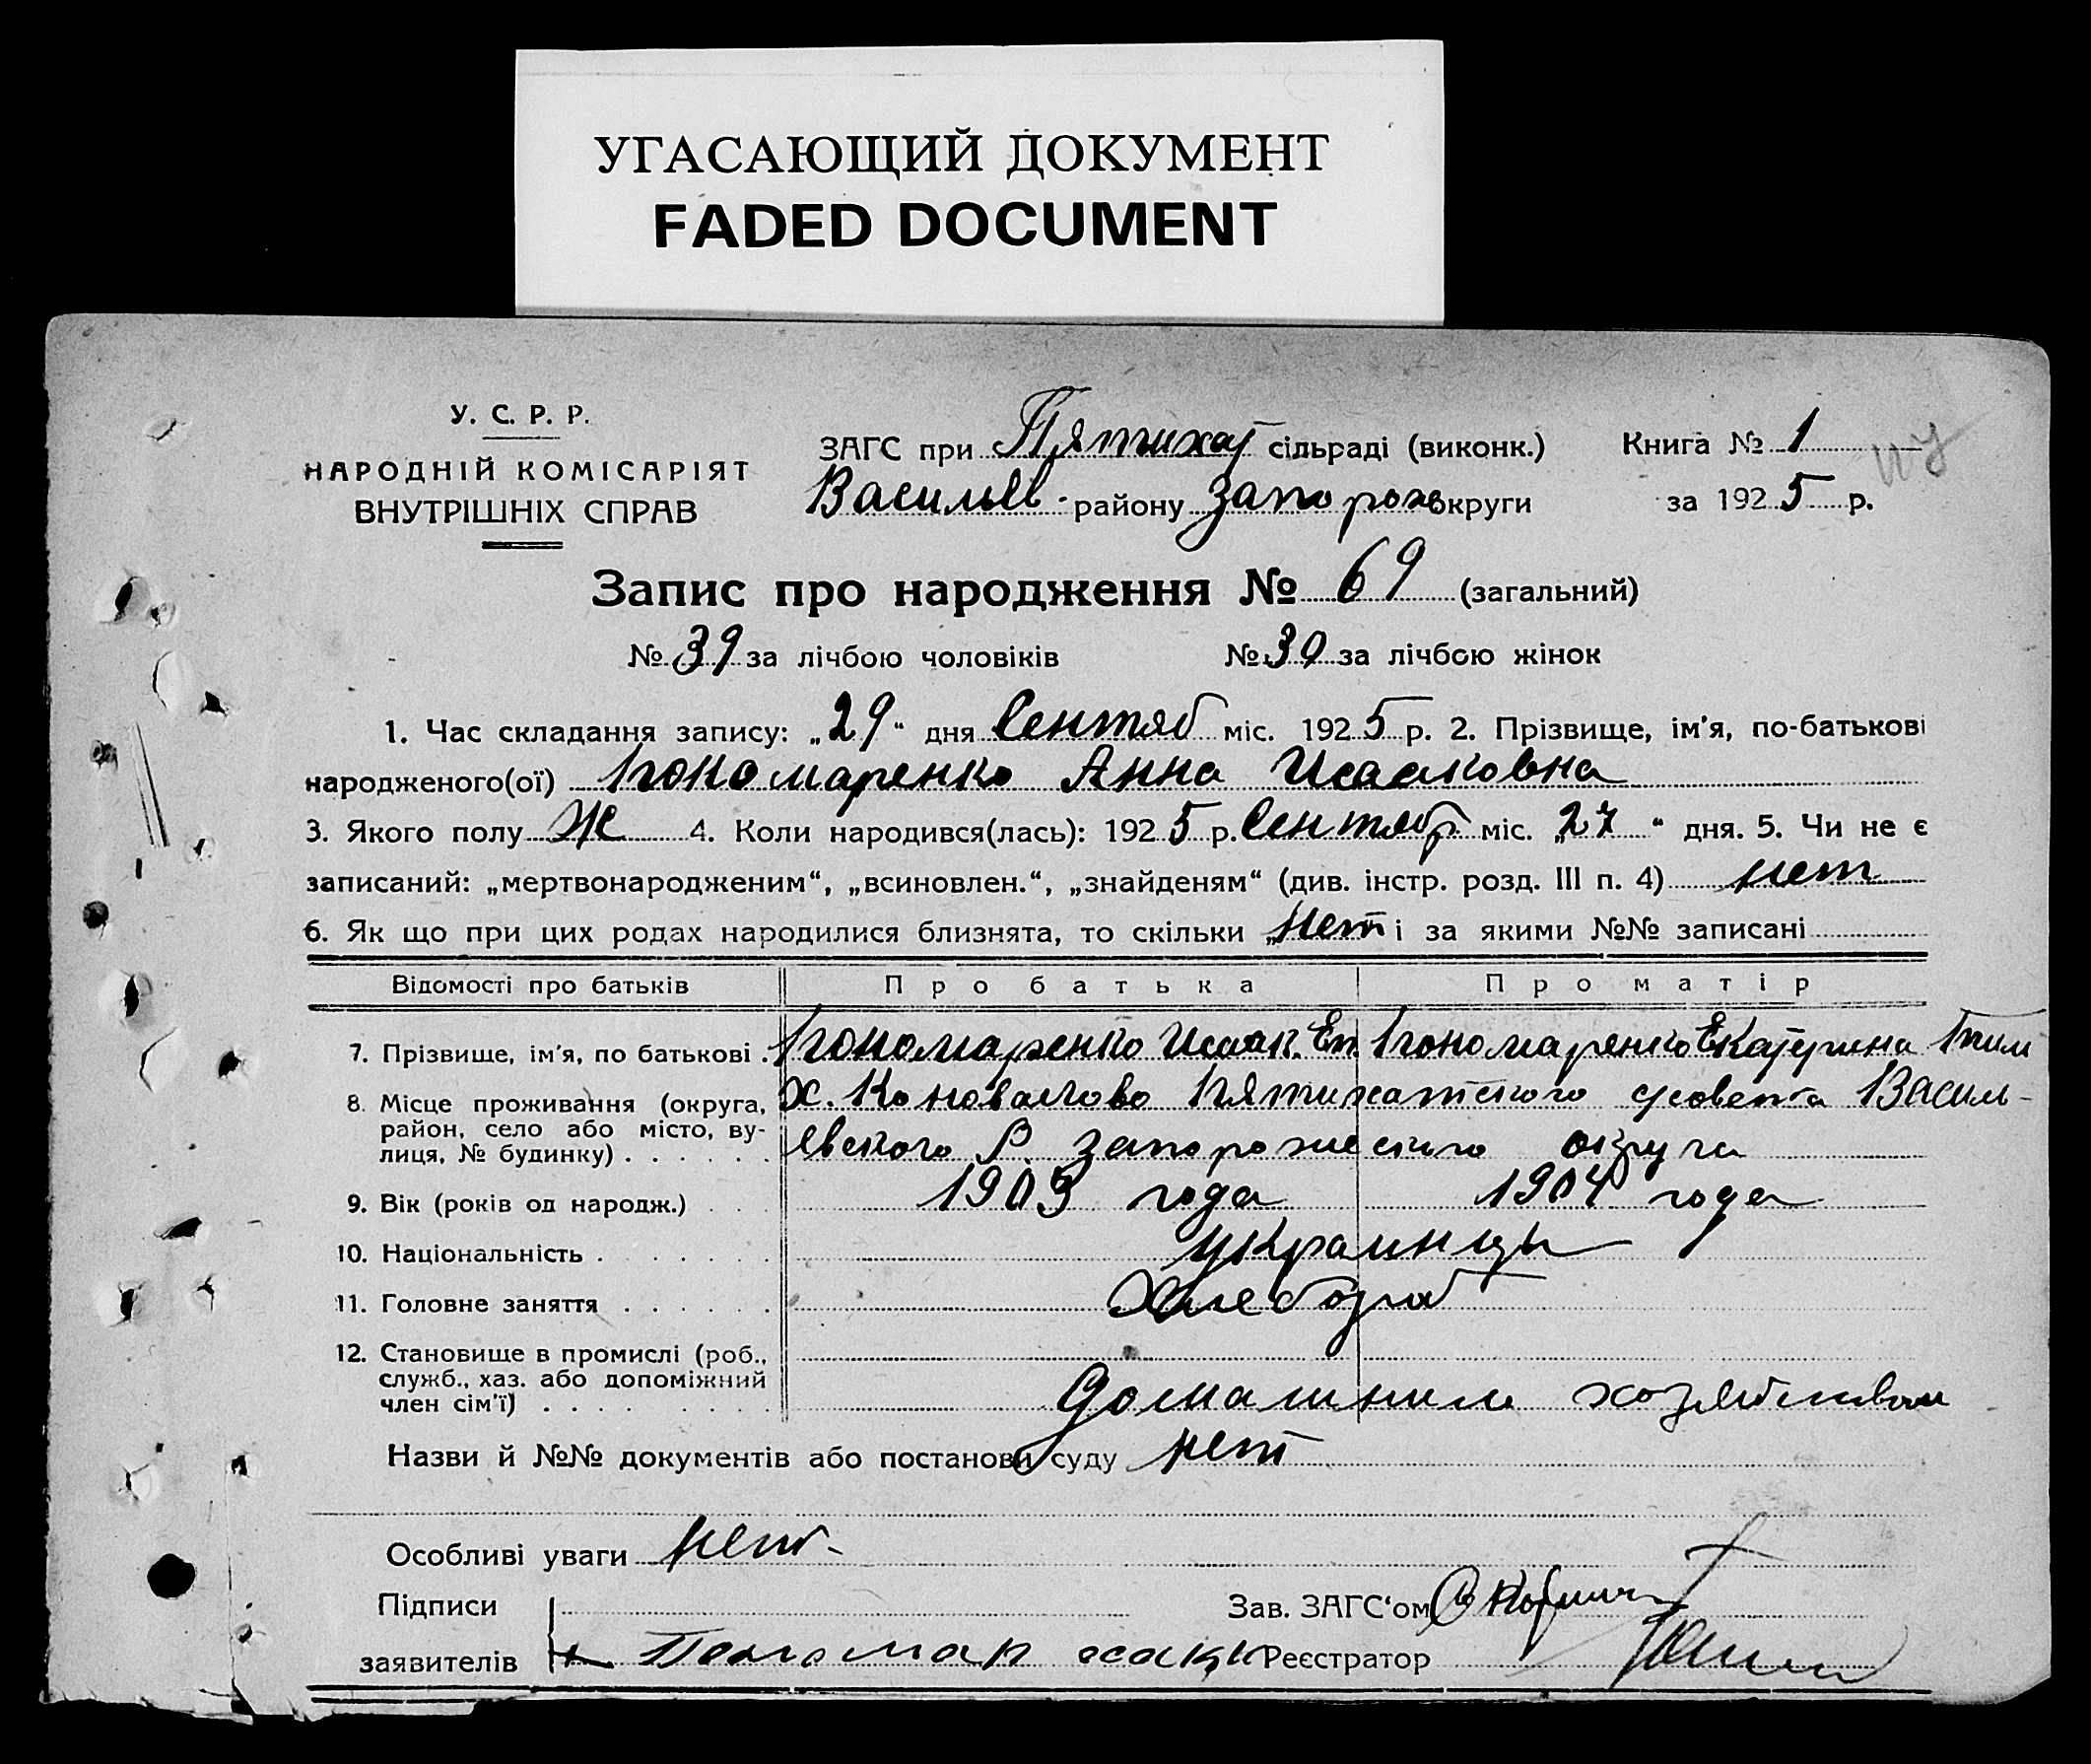 УГАСАЮЩИЙ ДОКУМЕНТ
FADED DOCUMENT
У. С. Р. Р.
НАРОДНІЙ КОМІСАРІЯТ
ВНУТРІШНІХ СПРАВ
ЗАГС при Пятихат сільраді (виконк.)
Васильев району Запорож округи
Книга № 1
за 1925 р.
Запис про народження № 69 (загальний)
№ 39 за лічбою чоловіків № 30 за лічбою жінок
1. Час складання запису: „29“ дня Сентяб міс. 1925 р. 2. Прізвище, ім'я, по-батькові
народженого(ої) Пономаренко Анна Исааковна
3. Якого полу Ж 4. Коли народився(лась): 1925 р. Сентябр міс. „27“ дня. 5. Чи не є
записаний: „мертвонародженим“, „всиновлен.“, „знайденям“ (див. інстр. розд. III п. 4) нет
6. Як що при цих родах народилися близнята, то скільки „нет і за якими №№ записані
Відомості про батьків Про батька Про матір
7. Прізвище, ім'я, по батькові . Пономаренко Исаак. Еп. Пономаренко Екатерина Тим
8. Місце проживання (округа, район, село або місто, вулиця, № будинку) . . . . . . Х. Коновалово Пятихатского усовета Василь-
евского Р. Запорожского округа
9. Вік (років од народж.) . . . 1903 года 1904 года
10. Національність . . . . . . украинцы
11. Головне заняття . . . . . . Хлебороб
12. Становище в промислі (роб., служб., хаз. або допоміжний член сім'ї) . . . . . . . . Домашним хозяйством
Назви й №№ документів або постанови суду нет
Особливі уваги нет-
Підписи
заявителів Пономар
Зав. ЗАГС'ом
Реєстратор